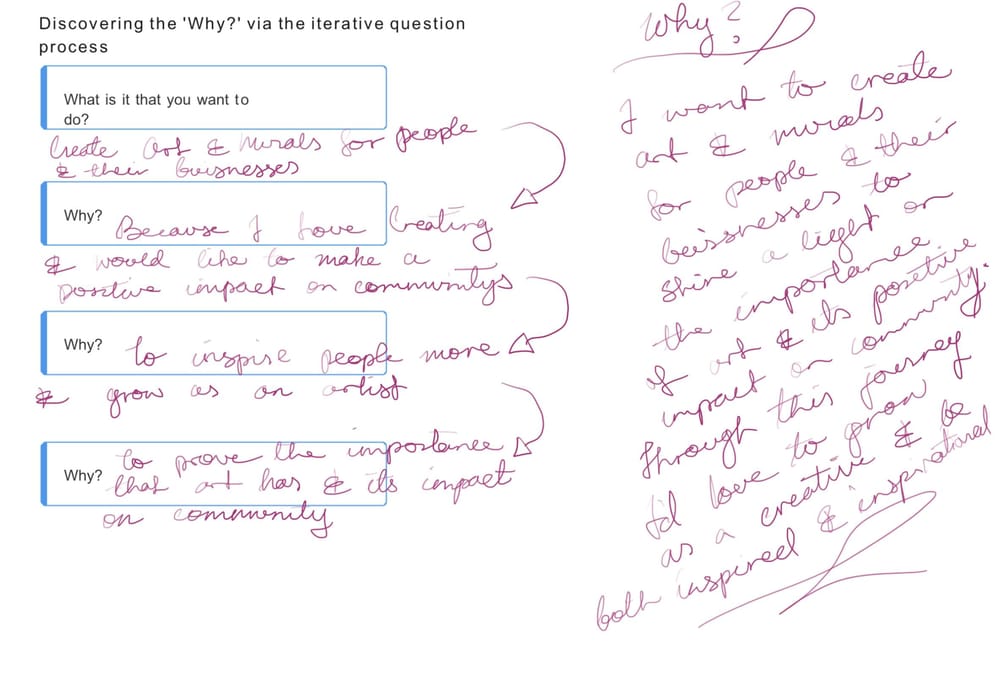 Discovering the 'Why?' via the iterative question
process
What is it that you want to
do?
Create Art & Murals for people
& their buisnesses
Why? Because I love Creating
& would like to make a
positive impact on communitys
Why? to inspire people more
& grow as an artist
Why? to prove the importance
that art has & its impact
on community
Why?
I want to create
art & murals
for people & their
buissnesses to
shine a light on
the importance
of art & its posetive
impact on community.
Through this journey
I'd love to grow
as a creative & be
both inspired & inspirational